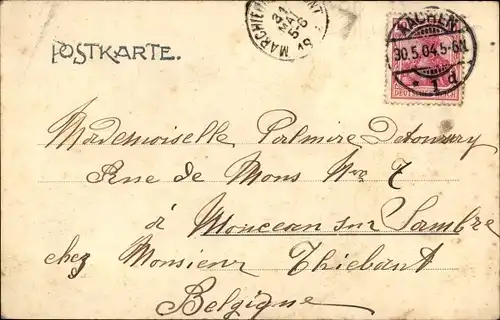 POSTKARTE.
MARCHIENNE
31 MAI 5-6 19
AACHEN
30.5.04.5-6N.
* 1 d
DEUTSCHES REICH
Mademoiselle Palmire Detournay
Rue de Mons Nro 7
à Monceau sur Sambre
chez Monsieur Thiebaut
Belgique